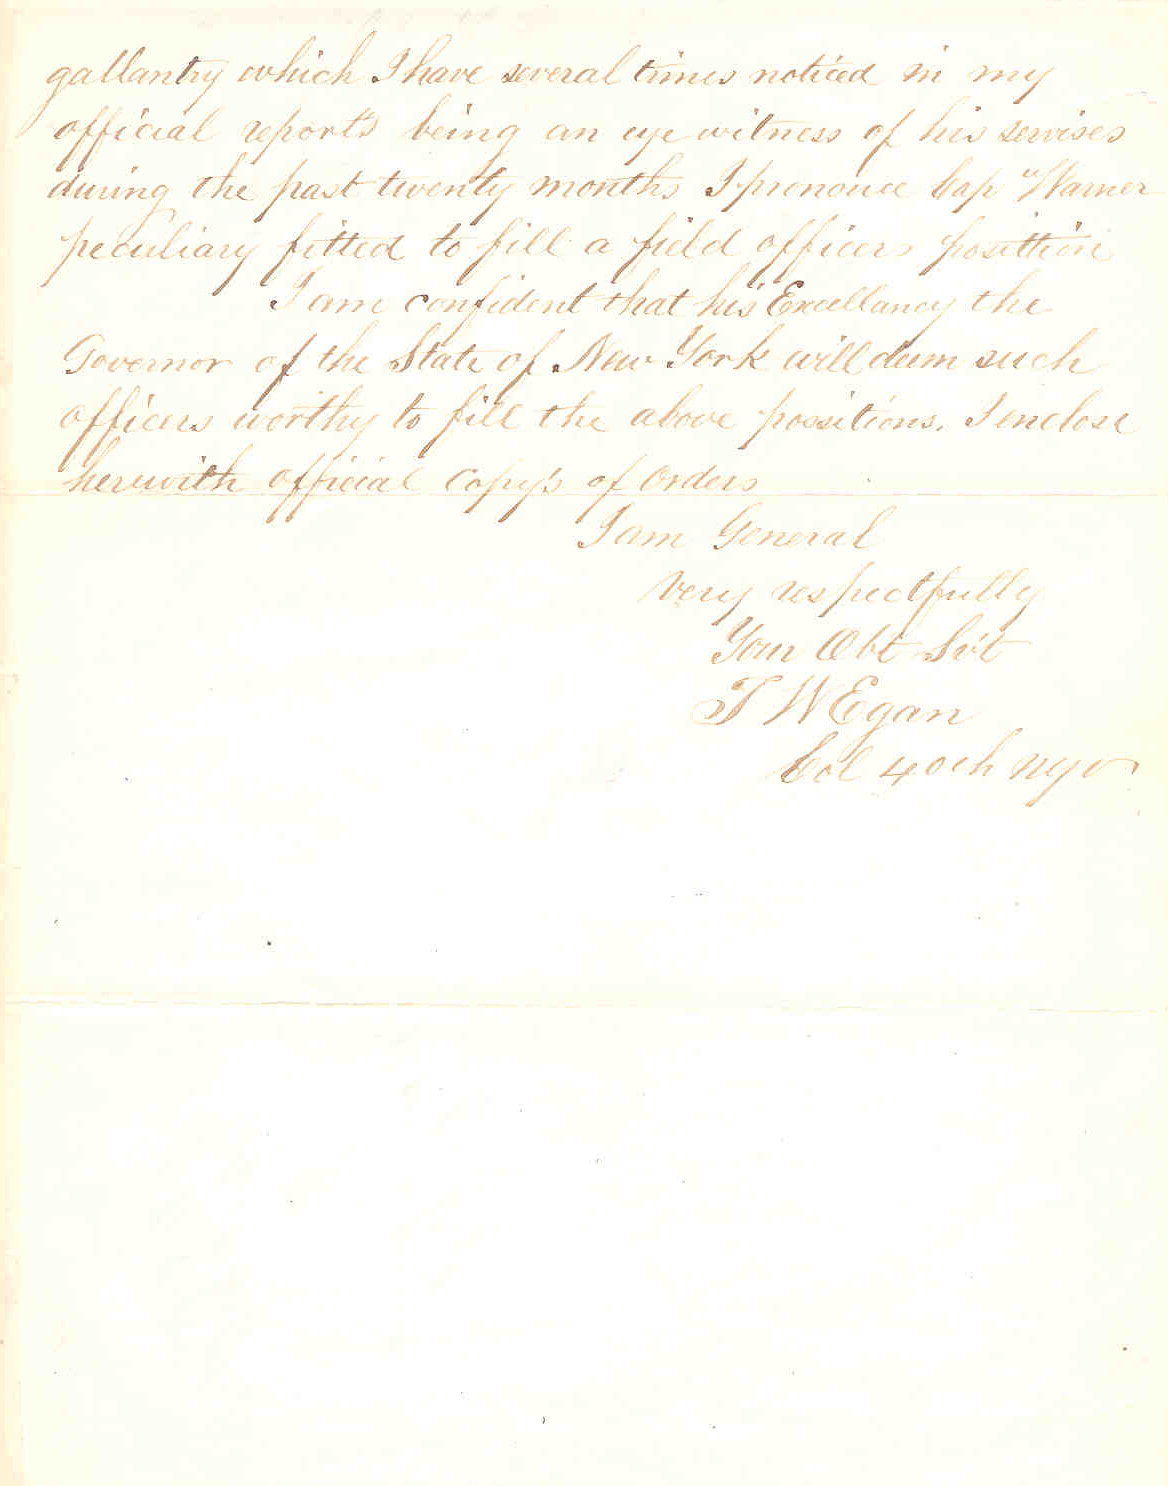 gallantry which I have several times noticed in my
official reports being an eye witness of his servises
during the past twenty months I pronouce Cap Warner
peculiary fitted to fill a field officers posittion
I am confident that his Excellancy the
Governor of the State of New York will deem such
officers worthy to fill the above possitions. I enclose
herewith official Copy's of Orders
I am General
very respectfully
Your Obt Svt
T W Egan
Col 40th NYV